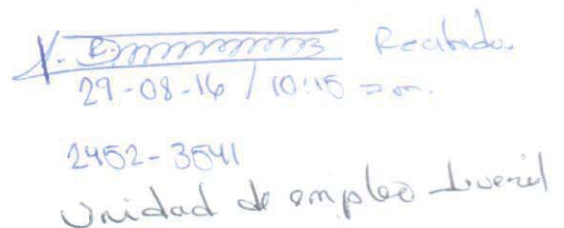 Recibido
29-08-16 / 10:15 am.
2452-3541
Unidad de empleo Juvenil